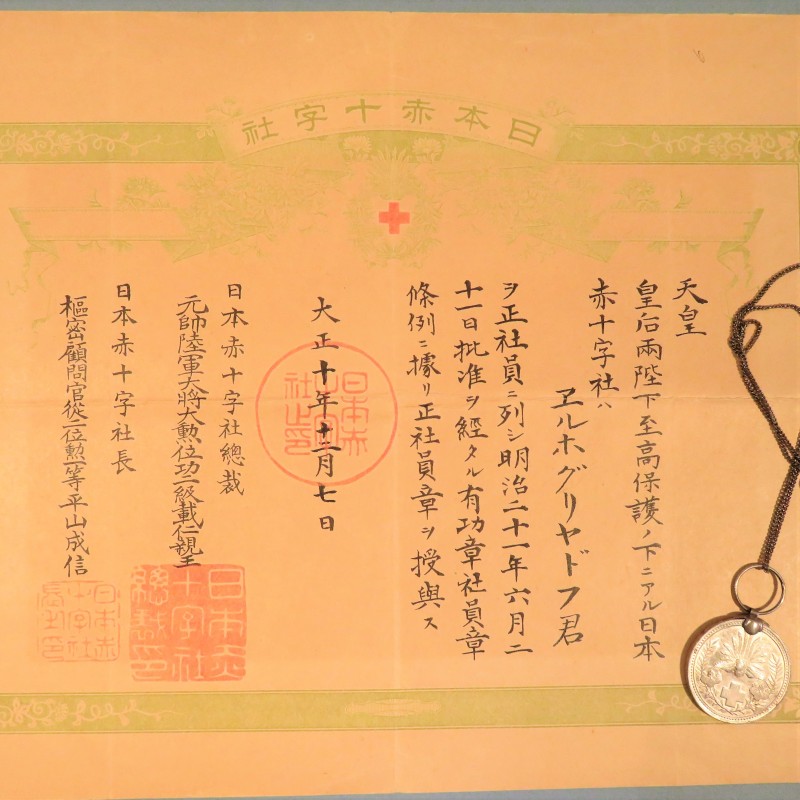 日本赤十字社
天皇
皇后兩陛下至高保護ノ下ニアル日本
赤十字社ハ
ヱルホグリヤドフ君
ヲ正社員ニ列シ明治二十一年六月二
十一日批准ヲ經タル有功章社員章
條例ニ據リ正社員章ヲ授與ス
大正十年十二月七日
日本赤十字社之印
日本赤十字社總裁
元帥陸軍大將大勲位功二級載仁親王
日本赤十字社總裁印
日本赤十字社長
樞密顧問官從二位勲一等平山成信
日本赤十字社長之印